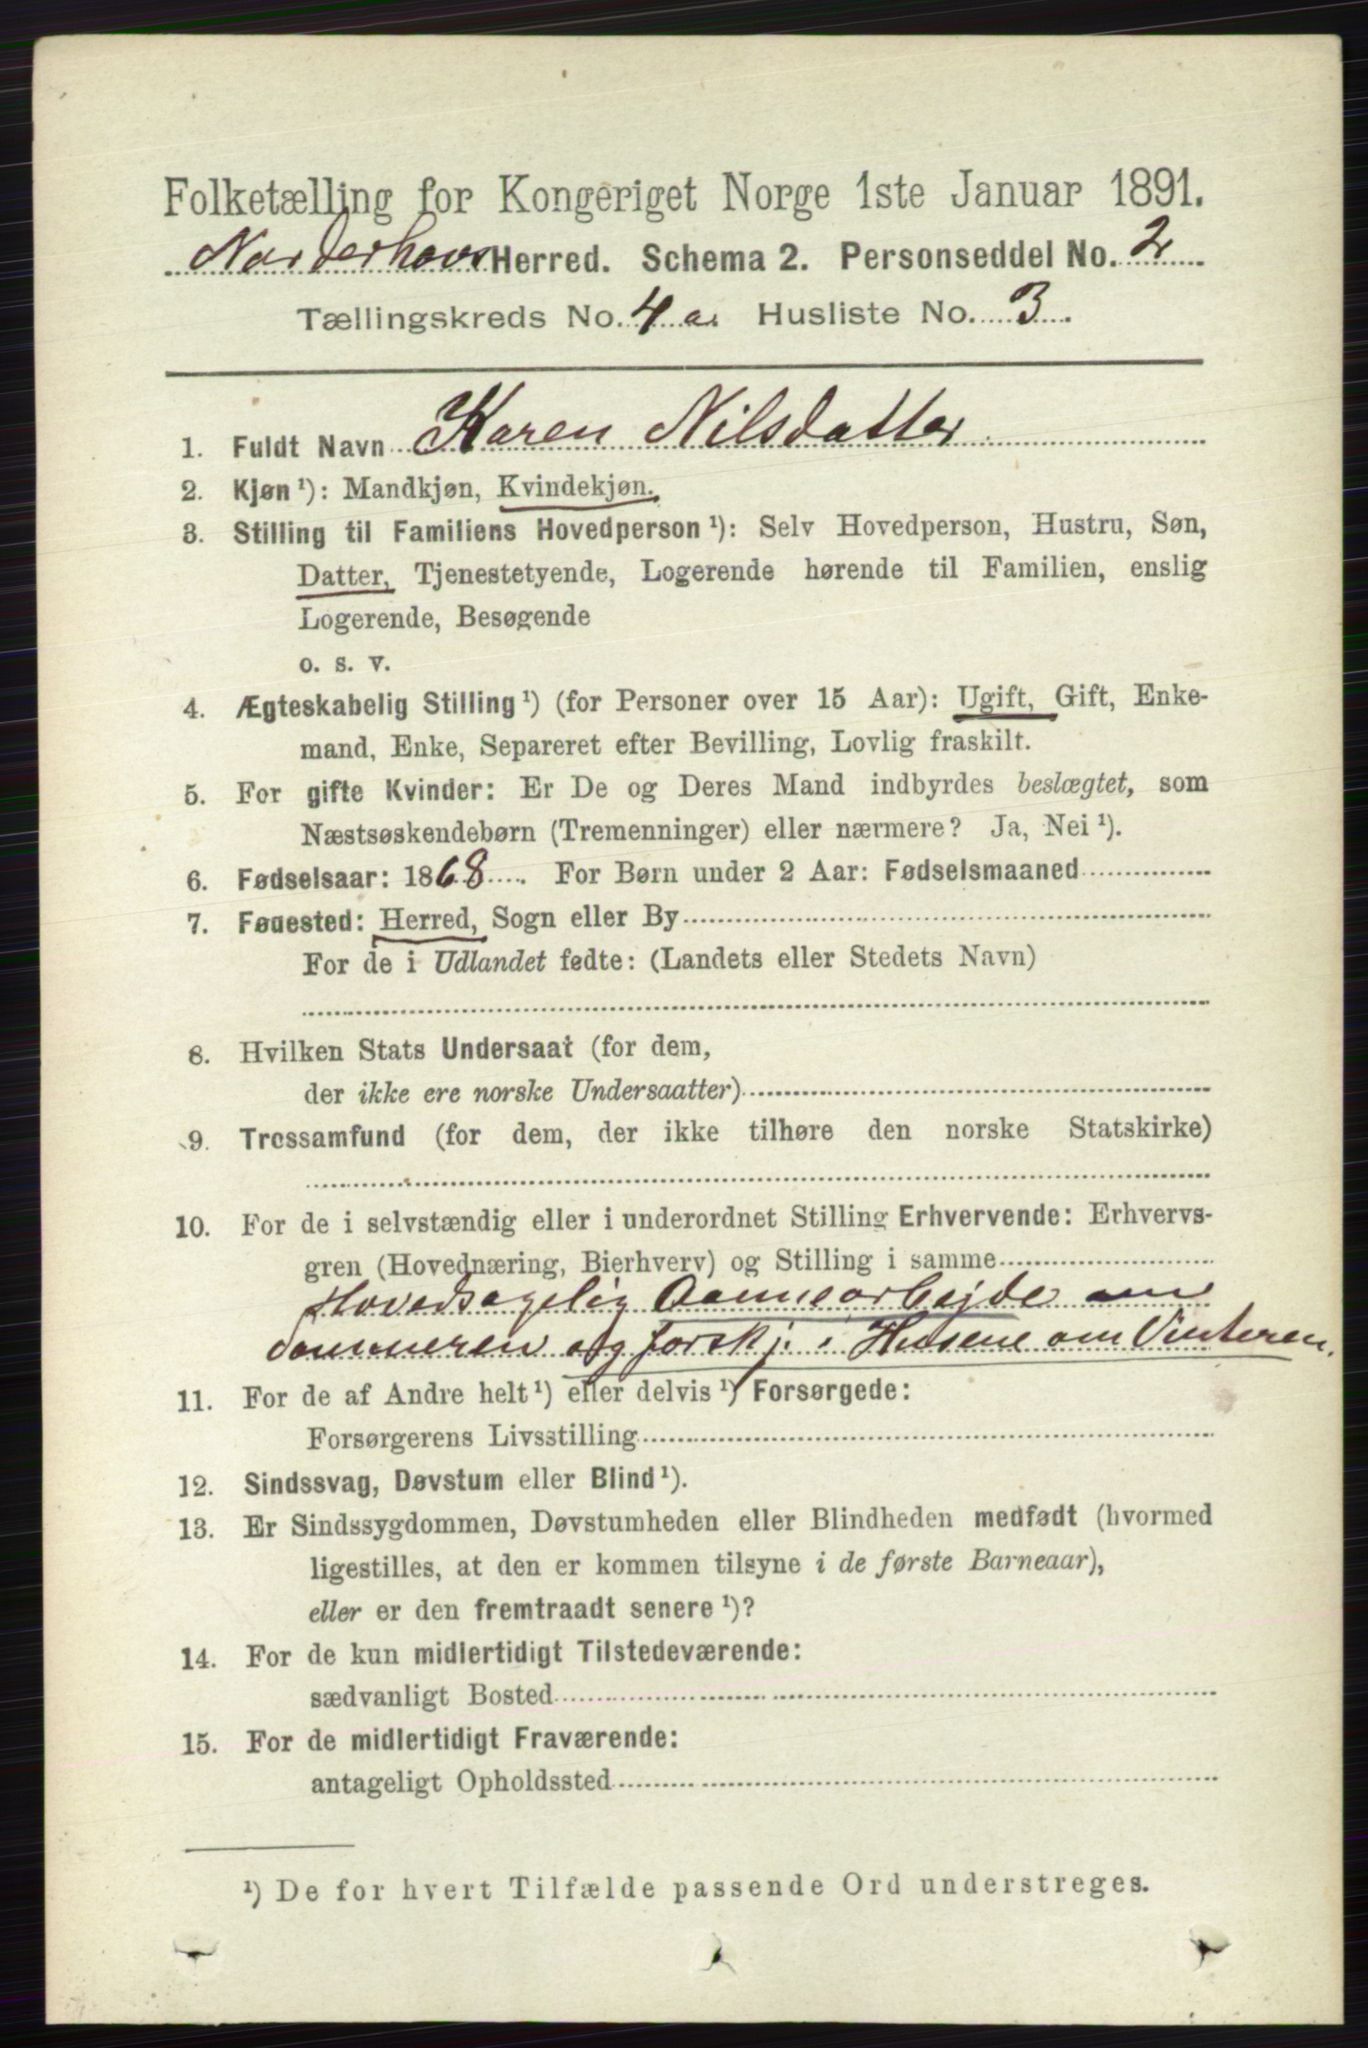 Folketælling for Kongeriget Norge 1ste Januar 1891.
Norderhovs Herred. Schema 2. Personseddel No. 2
Tællingskreds No. 4 a. Husliste No. 3.
1. Fuldt Navn Karen Nilsdatter
2. Kjøn ¹): Mandkjøn, Kvindekjøn.
3. Stilling til Familiens Hovedperson ¹): Selv Hovedperson, Hustru, Søn,
Datter, Tjenestetyende, Logerende hørende til Familien, enslig
Logerende, Besøgende
o. s. v.
4. Ægteskabelig Stilling ¹) (for Personer over 15 Aar): Ugift, Gift, Enke-
mand, Enke, Separeret efter Bevilling, Lovlig fraskilt.
5. For gifte Kvinder: Er De og Deres Mand indbyrdes beslægtet, som
Næstsøskendebørn (Tremenninger) eller nærmere? Ja, Nei ¹).
6. Fødselsaar: 1868. For Børn under 2 Aar: Fødselsmaaned
7. Fødested: Herred, Sogn eller By
For de i Udlandet fødte: (Landets eller Stedets Navn)
8. Hvilken Stats Undersaat (for dem,
der ikke ere norske Undersaatter)
9. Trossamfund (for dem, der ikke tilhøre den norske Statskirke)
10. For de i selvstændig eller i underordnet Stilling Erhvervende: Erhvervs-
gren (Hovednæring, Bierhverv) og Stilling i samme
Hovedsagelig Aannearbejde om
Sommeren og forskj. i Husene om Vinteren.
11. For de af Andre helt ¹) eller delvis ¹) Forsørgede:
Forsørgerens Livsstilling
12. Sindssvag, Døvstum eller Blind ¹).
13. Er Sindssygdommen, Døvstumheden eller Blindheden medfødt (hvormed
ligestilles, at den er kommen tilsyne i de første Barneaar),
eller er den fremtraadt senere ¹)?
14. For de kun midlertidigt Tilstedeværende:
sædvanligt Bosted
15. For de midlertidigt Fraværende:
antageligt Opholdssted
¹) De for hvert Tilfælde passende Ord understreges.